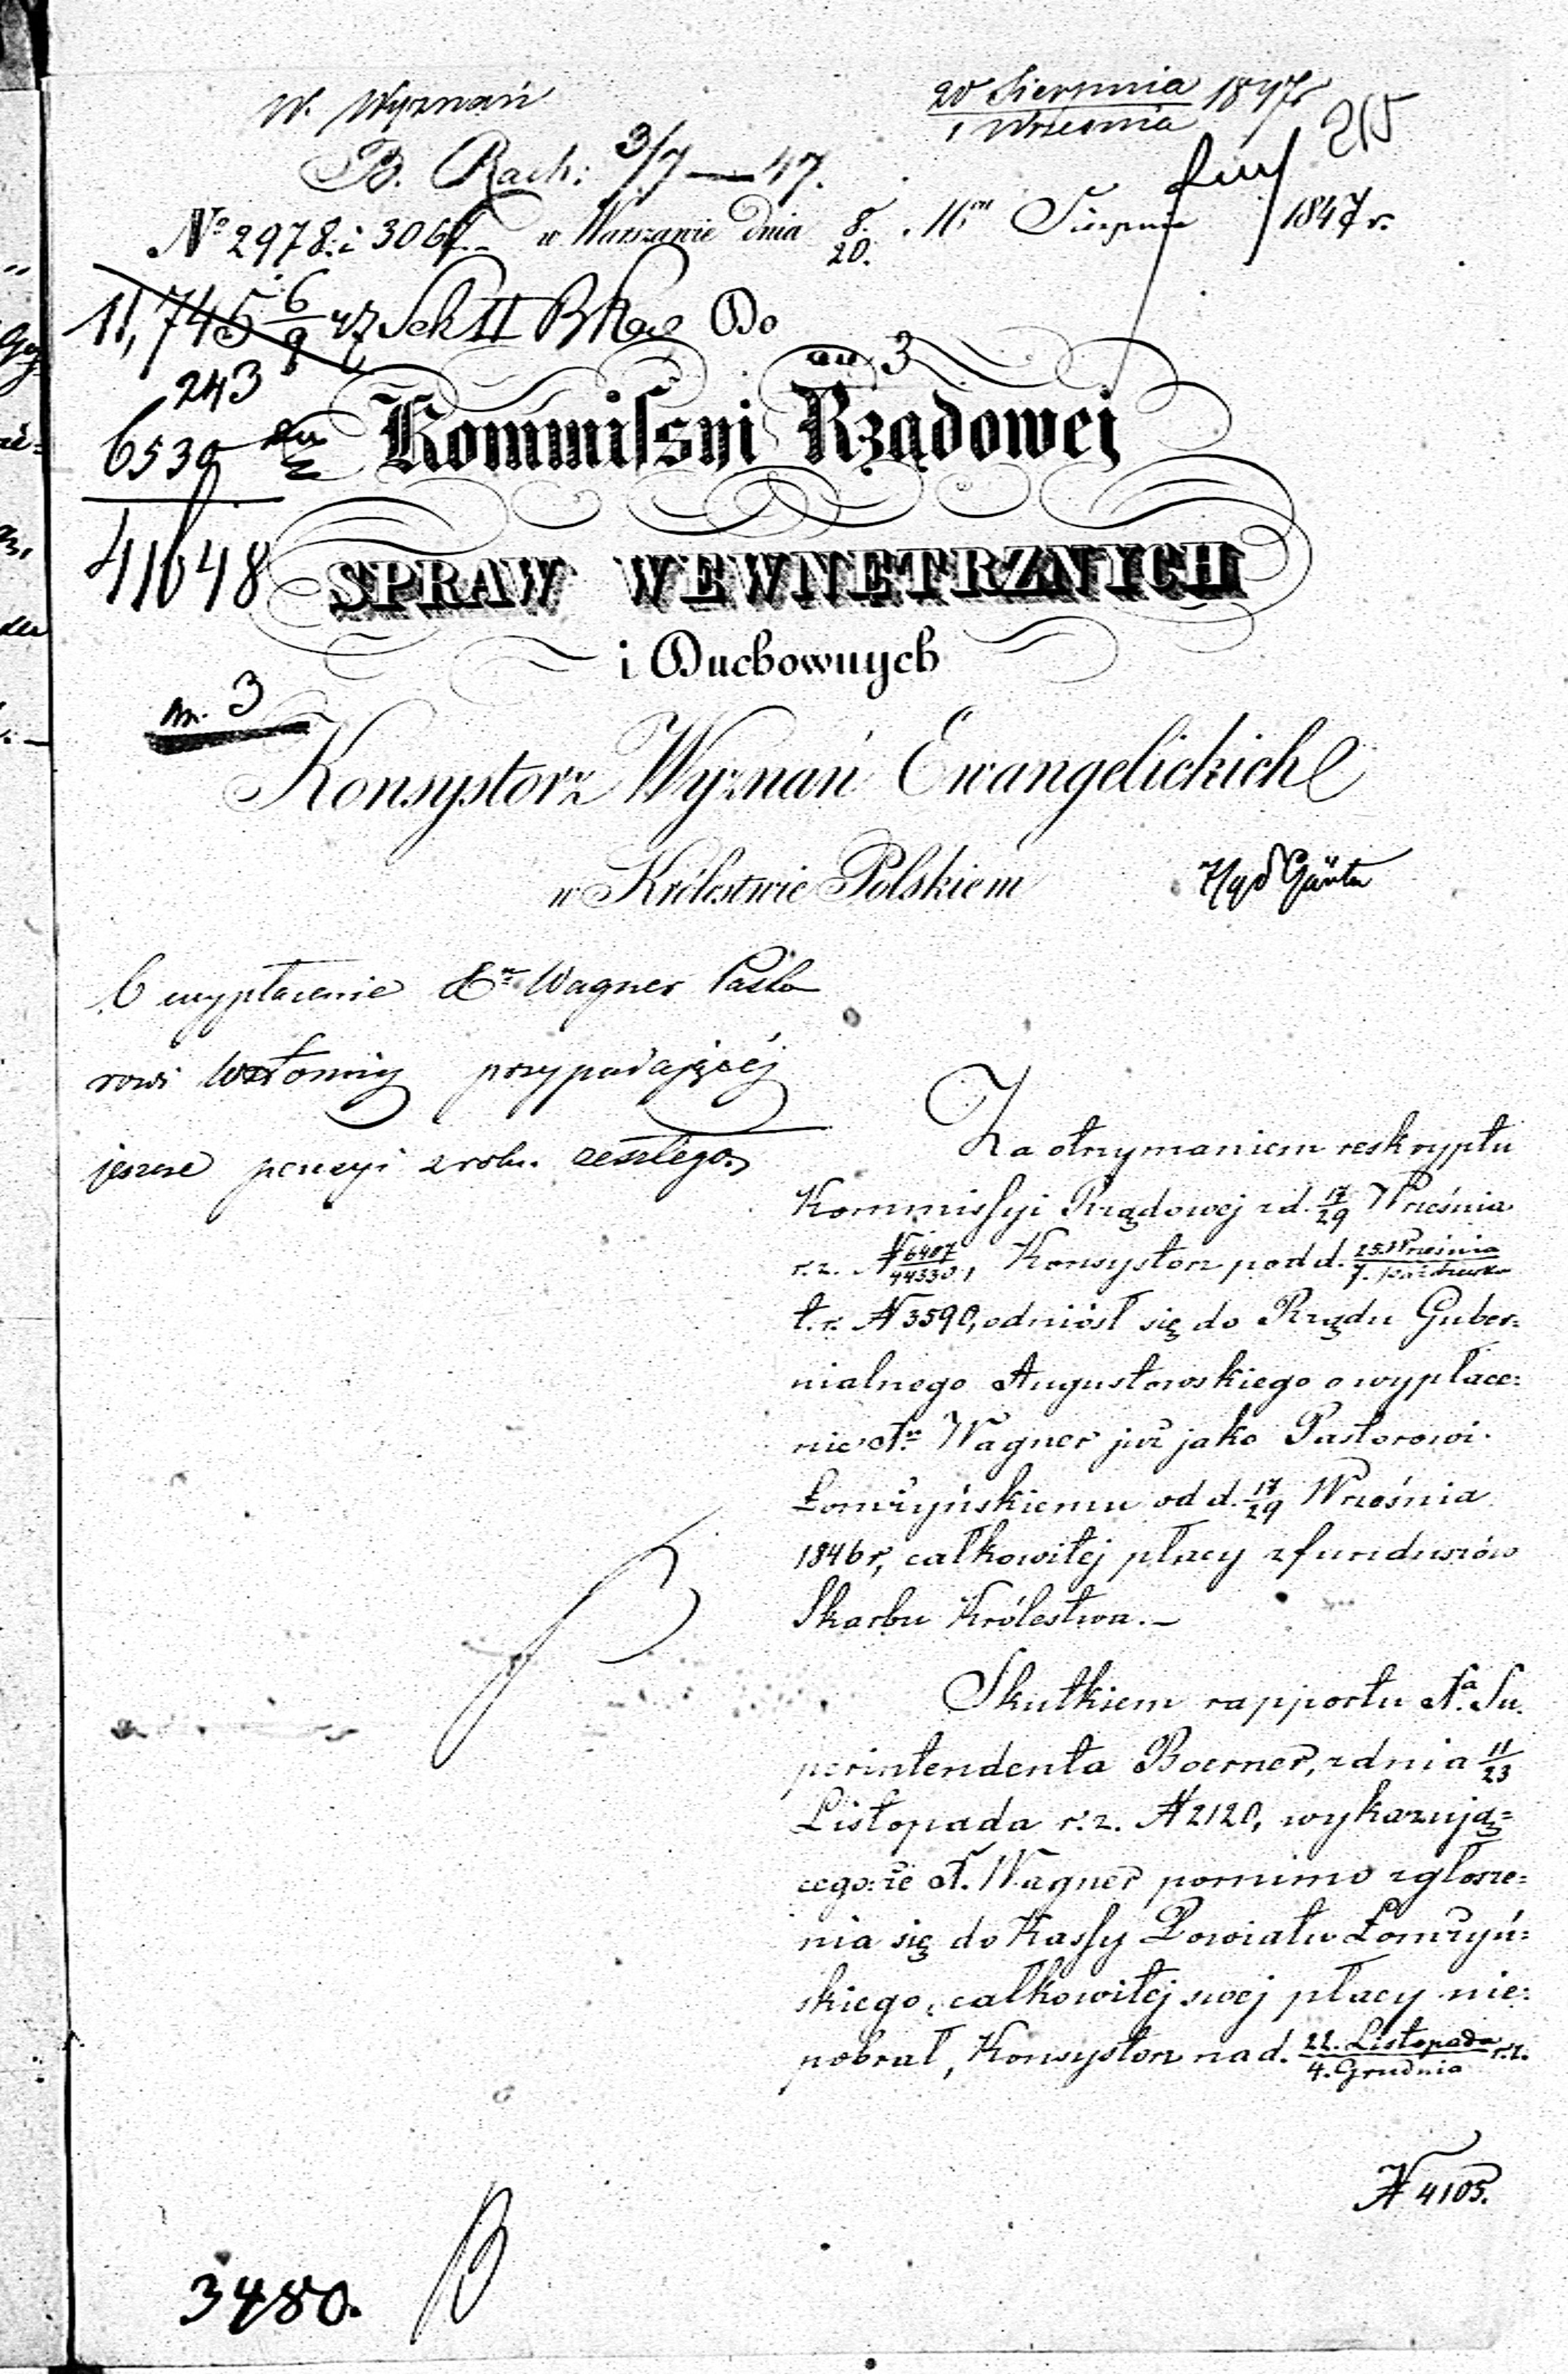 W. Wyznań
20 Sierpnia / 1 Września 1847 r
215
B. Rach: 3/7 — 47.
№ 2978. i 3064. w Warszawie dnia 8./20. Sierpnia 1847 r.
11,745 6/9 47 Sek II Do
243
6530
Kommissyi Rządowej
41648
SPRAW WEWNĘTRZNYCH
i Duchownych
3
Konsystorz Wyznań Ewangelickich
w Królestwie Polskiem
7/9
O wypłacenie Xn Wagner Pasto
rowi w Łomży przypadającéj
jeszcze pensyi z roku zeszłego.
Za otrzymaniem reskryptu
Kommissyi Rządowej z d. 17/29 Września
r. z. N 6407/44330, Konsystorz pod d. 25. Września / 7. Października
t. r. N 3590, odniósł się do Rządu Guber=
nialnego Augustowskiego o wypłace=
nie Xn Wagner już jako Pastorowi
Łomżyńskiemu od d. 17/29 Września
1846 r, całkowitej płacy z funduszów
Skarbu Królestwa. —
Skutkiem rapportu Xa Su=
perintendenta Boerner, z dnia 11/23
Listopada r. z. N 2120, wykazują=
cego: że X. Wagner pomimo zgłosze=
nia się do Kassy Powiatu Łomżyń=
skiego, całkowitej swej płacy nie=
pobrał, Konsystorz na d. 22. Listopada / 4. Grudnia r. z.
N 4105.
3480.